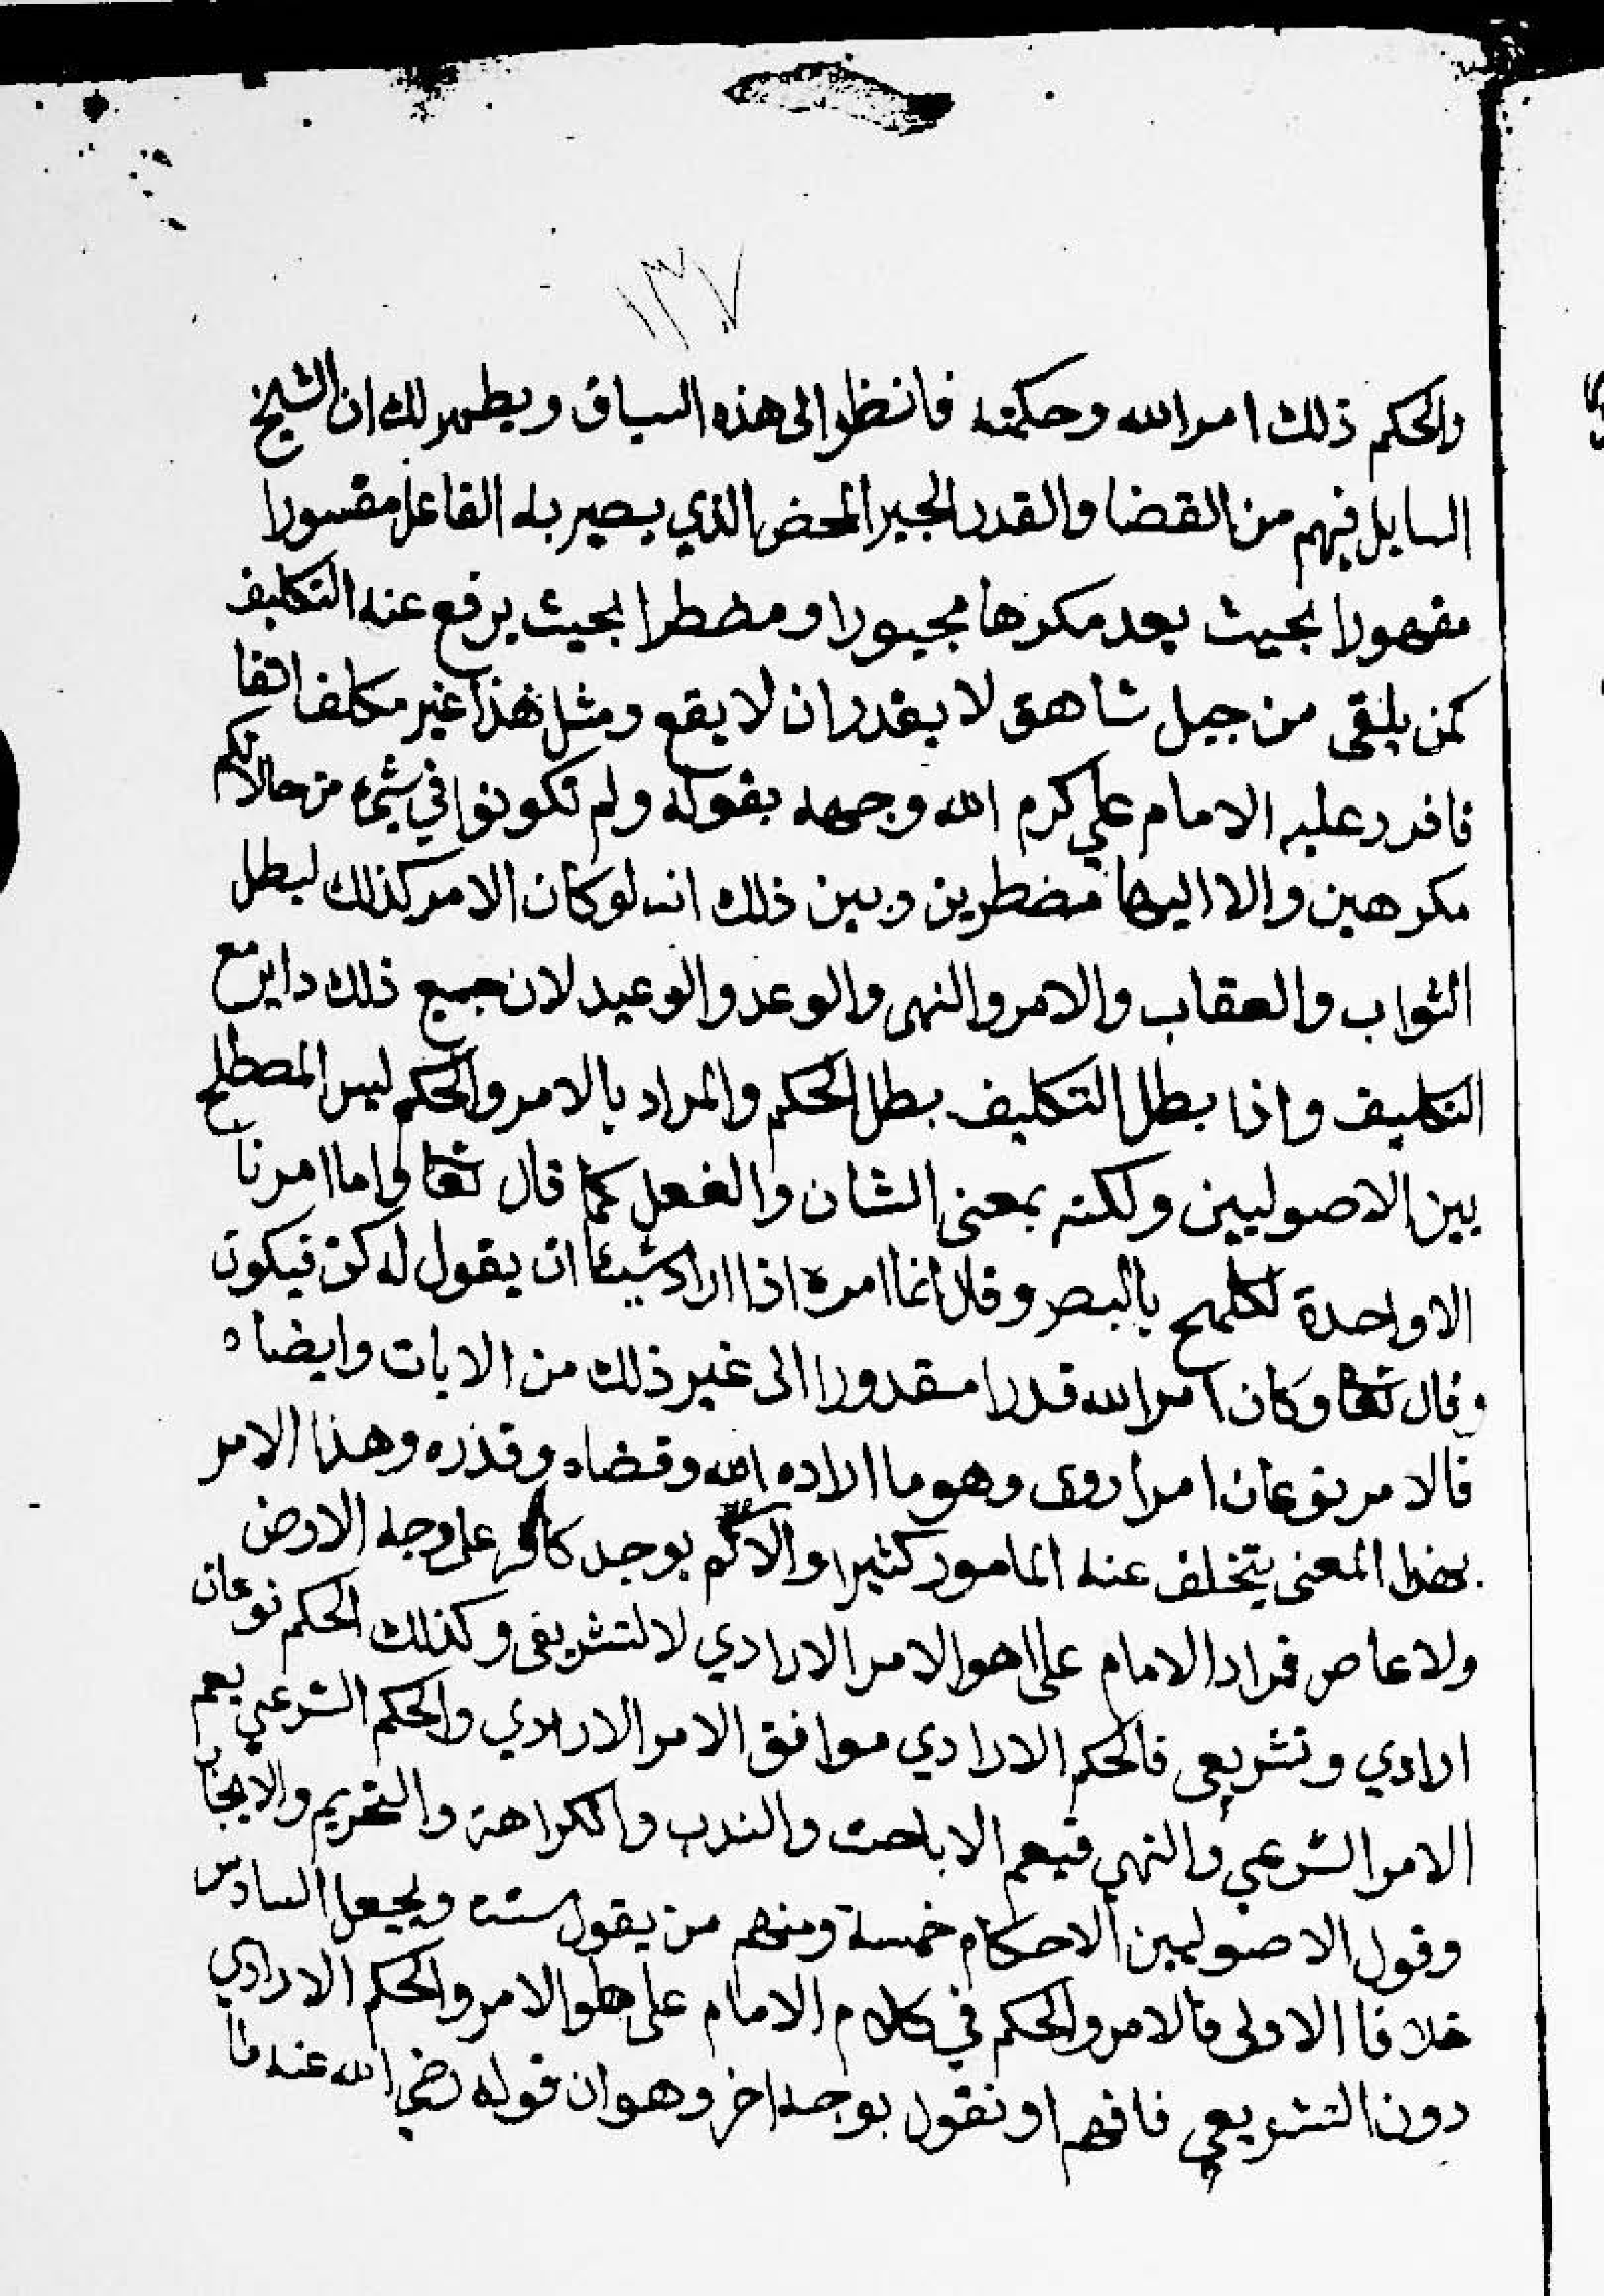 ١٣٧
والحكم ذلك امر الله وحكمته فانظر الى هذه السياق ويظهر لك ان الشيخ
السايل فهم من القضا والقدر الجبر المحض الذي يصير به الفاعل مقسورا
مقهورا بحيث يعد مكرها مجبورا ومضطرا بحيث يرفع عنه التكليف
كمن يلقى من جبل شاهق لا يقدر ان لا يقع ومثل هذا غير مكلف اتفا
قا فرد عليه الامام علي كرم الله وجهه بقوله ولم تكونوا في شيء من حالاتكم
مكرهين والا اليها مضطرين وبين ذلك انه لو كان الامر كذلك لبطل
الثواب والعقاب والامر والنهي والوعد والوعيد لان جميع ذلك داير مع
التكليف واذا بطل التكليف بطل الحكم والمراد بالامر والحكم ليس المصطلح
بين الاصوليين ولكنه بمعنى الشان والفعل كما قال تعا واما امرنا
الا واحدة كلمح بالبصر وقال انما امره اذا اراد شيئا ان يقول له كن فيكون
وقال تعا وكان امر الله قدرا مقدورا الى غير ذلك من الايات وايضا
فالامر نوعان امر وهو ما اراده الله وقضاه وقدره وهذا الامر
بهذا المعنى يتخلف عنه المامور كثيرا والا لم يوجد كافر على وجه الارض
ولا عاص فمراد الامام علي هو الامر الارادي لا التشريعي وكذلك الحكم نوعان
ارادي وتشريعي فالحكم الارادي موافق الامر الارادي والحكم الشرعي يعم
الامر الشرعي والنهي فيعم الاباحت والندب والكراهة والتحريم والايجاب
وقول الاصوليين الاحكام خمسة ومنهم من يقول سته ويجعل السادس
خلافا الاولى فالامر والحكم في كلام الامام علي هو الامر والحكم الارادي
دون التشريعي فافهم او نقول بوجه اخر وهو ان قوله رضي الله عنه ما